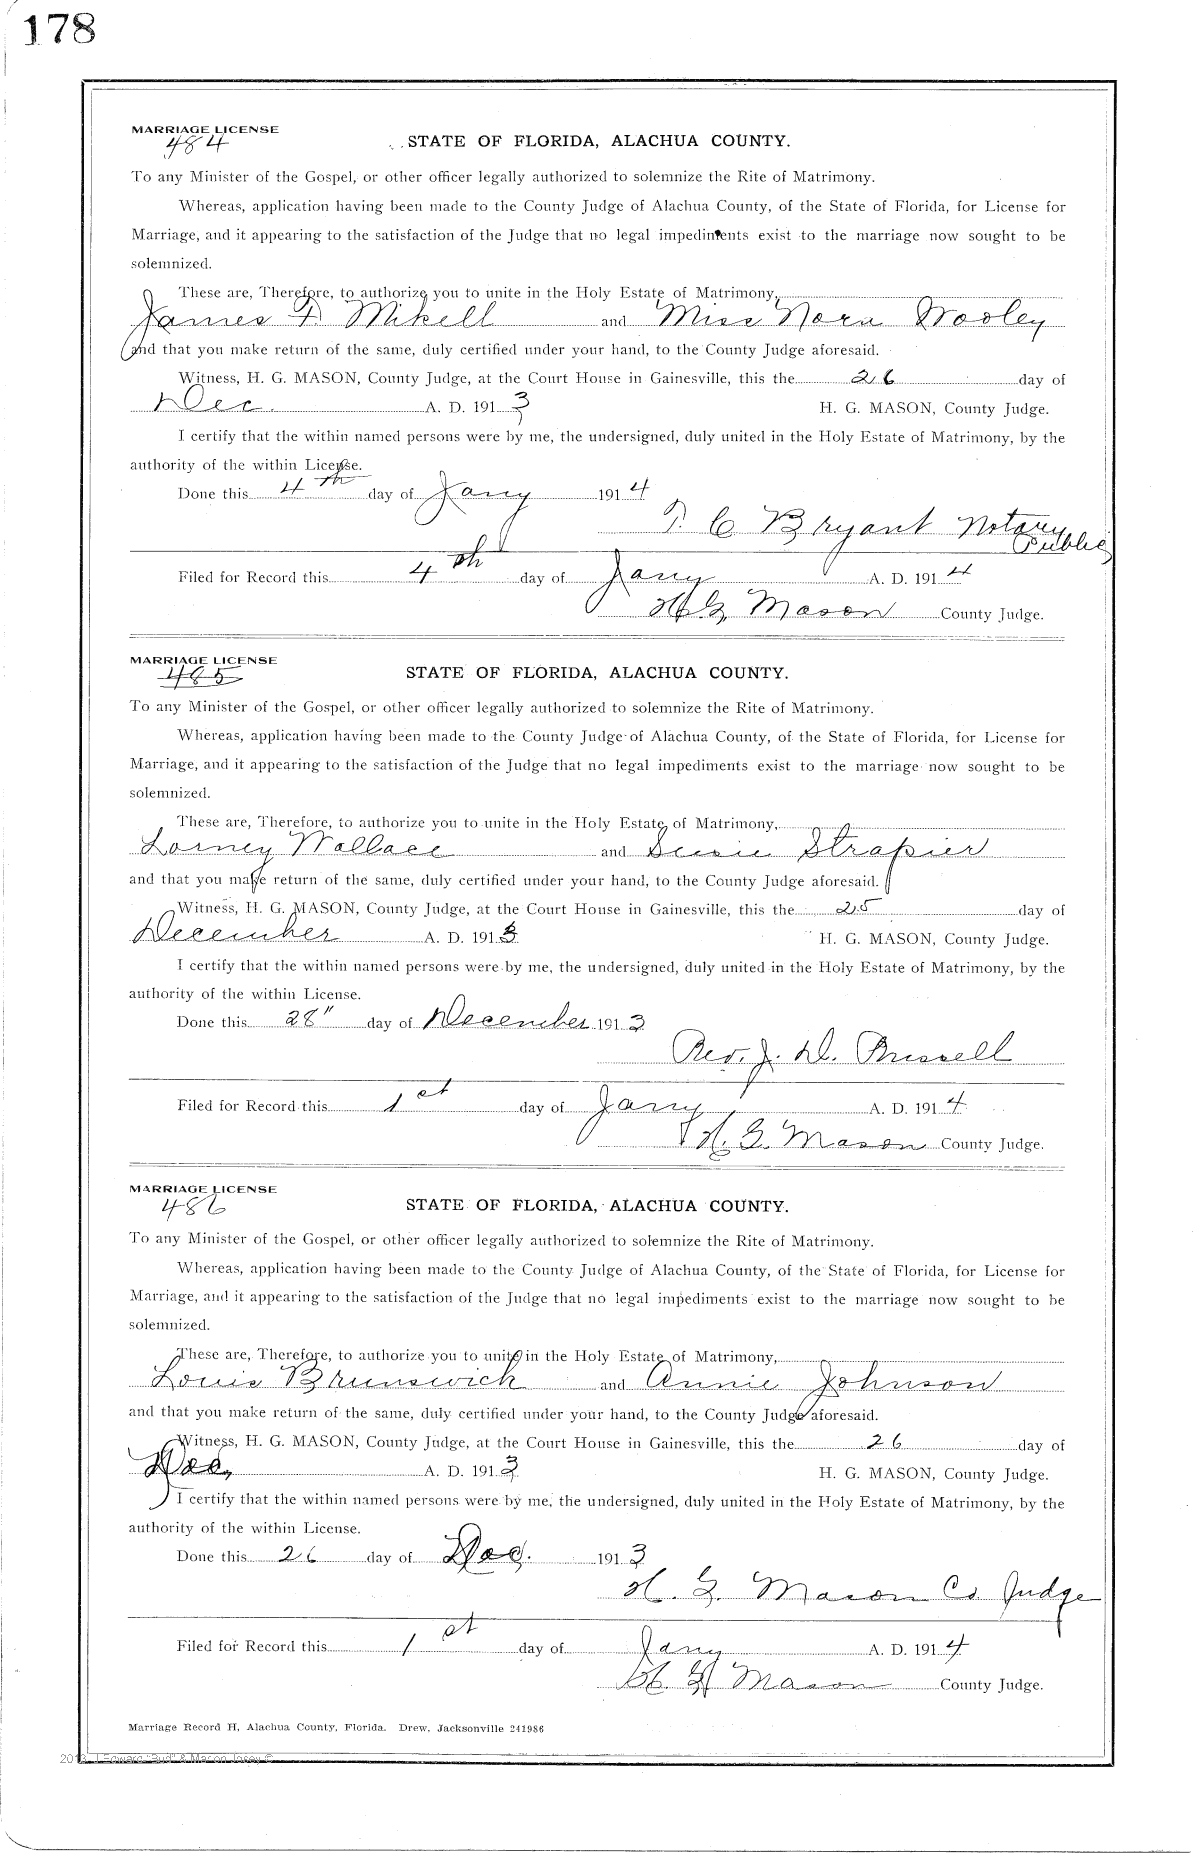 178
MARRIAGE LICENSE
484
STATE OF FLORIDA, ALACHUA COUNTY.
To any Minister of the Gospel, or other officer legally authorized to solemnize the Rite of Matrimony.
Whereas, application having been made to the County Judge of Alachua County, of the State of Florida, for License for
Marriage, and it appearing to the satisfaction of the Judge that no legal impediments exist to the marriage now sought to be
solemnized.
These are, Therefore, to authorize you to unite in the Holy Estate of Matrimony,
James F. Mikell and Miss Nora Wooley
and that you make return of the same, duly certified under your hand, to the County Judge aforesaid.
Witness, H. G. MASON, County Judge, at the Court House in Gainesville, this the 26 day of
Dec. A. D. 1913 H. G. MASON, County Judge.
I certify that the within named persons were by me, the undersigned, duly united in the Holy Estate of Matrimony, by the
authority of the within License.
Done this 4th day of Jany 1914
T. C Bryant Notary
Public
Filed for Record this 4th day of Jany A. D. 1914
H. G. Mason County Judge.
MARRIAGE LICENSE
485
STATE OF FLORIDA, ALACHUA COUNTY.
To any Minister of the Gospel, or other officer legally authorized to solemnize the Rite of Matrimony.
Whereas, application having been made to the County Judge of Alachua County, of the State of Florida, for License for
Marriage, and it appearing to the satisfaction of the Judge that no legal impediments exist to the marriage now sought to be
solemnized.
These are, Therefore, to authorize you to unite in the Holy Estate of Matrimony,
Lorney Wallace and Susie Strapier
and that you make return of the same, duly certified under your hand, to the County Judge aforesaid.
Witness, H. G. MASON, County Judge, at the Court House in Gainesville, this the 25 day of
December A. D. 1913 H. G. MASON, County Judge.
I certify that the within named persons were by me, the undersigned, duly united in the Holy Estate of Matrimony, by the
authority of the within License.
Done this 28" day of December 1913
Rev. J. D.
Filed for Record this 1st day of Jany A. D. 1914
H. G. Mason County Judge.
MARRIAGE LICENSE
486
STATE OF FLORIDA, ALACHUA COUNTY.
To any Minister of the Gospel, or other officer legally authorized to solemnize the Rite of Matrimony.
Whereas, application having been made to the County Judge of Alachua County, of the State of Florida, for License for
Marriage, and it appearing to the satisfaction of the Judge that no legal impediments exist to the marriage now sought to be
solemnized.
These are, Therefore, to authorize you to unite in the Holy Estate of Matrimony,
Louis Brunswick and Annie Johnson
and that you make return of the same, duly certified under your hand, to the County Judge aforesaid.
Witness, H. G. MASON, County Judge, at the Court House in Gainesville, this the 26 day of
Dec, A. D. 1913 H. G. MASON, County Judge.
I certify that the within named persons were by me, the undersigned, duly united in the Holy Estate of Matrimony, by the
authority of the within License.
Done this 26 day of Dec. 1913
H. G. Mason Co Judge
Filed for Record this 1st day of Jany A. D. 1914
H. G. Mason County Judge.
Marriage Record H, Alachua County, Florida. Drew, Jacksonville 241986
J Edward "Bud" & Mason Josey ©